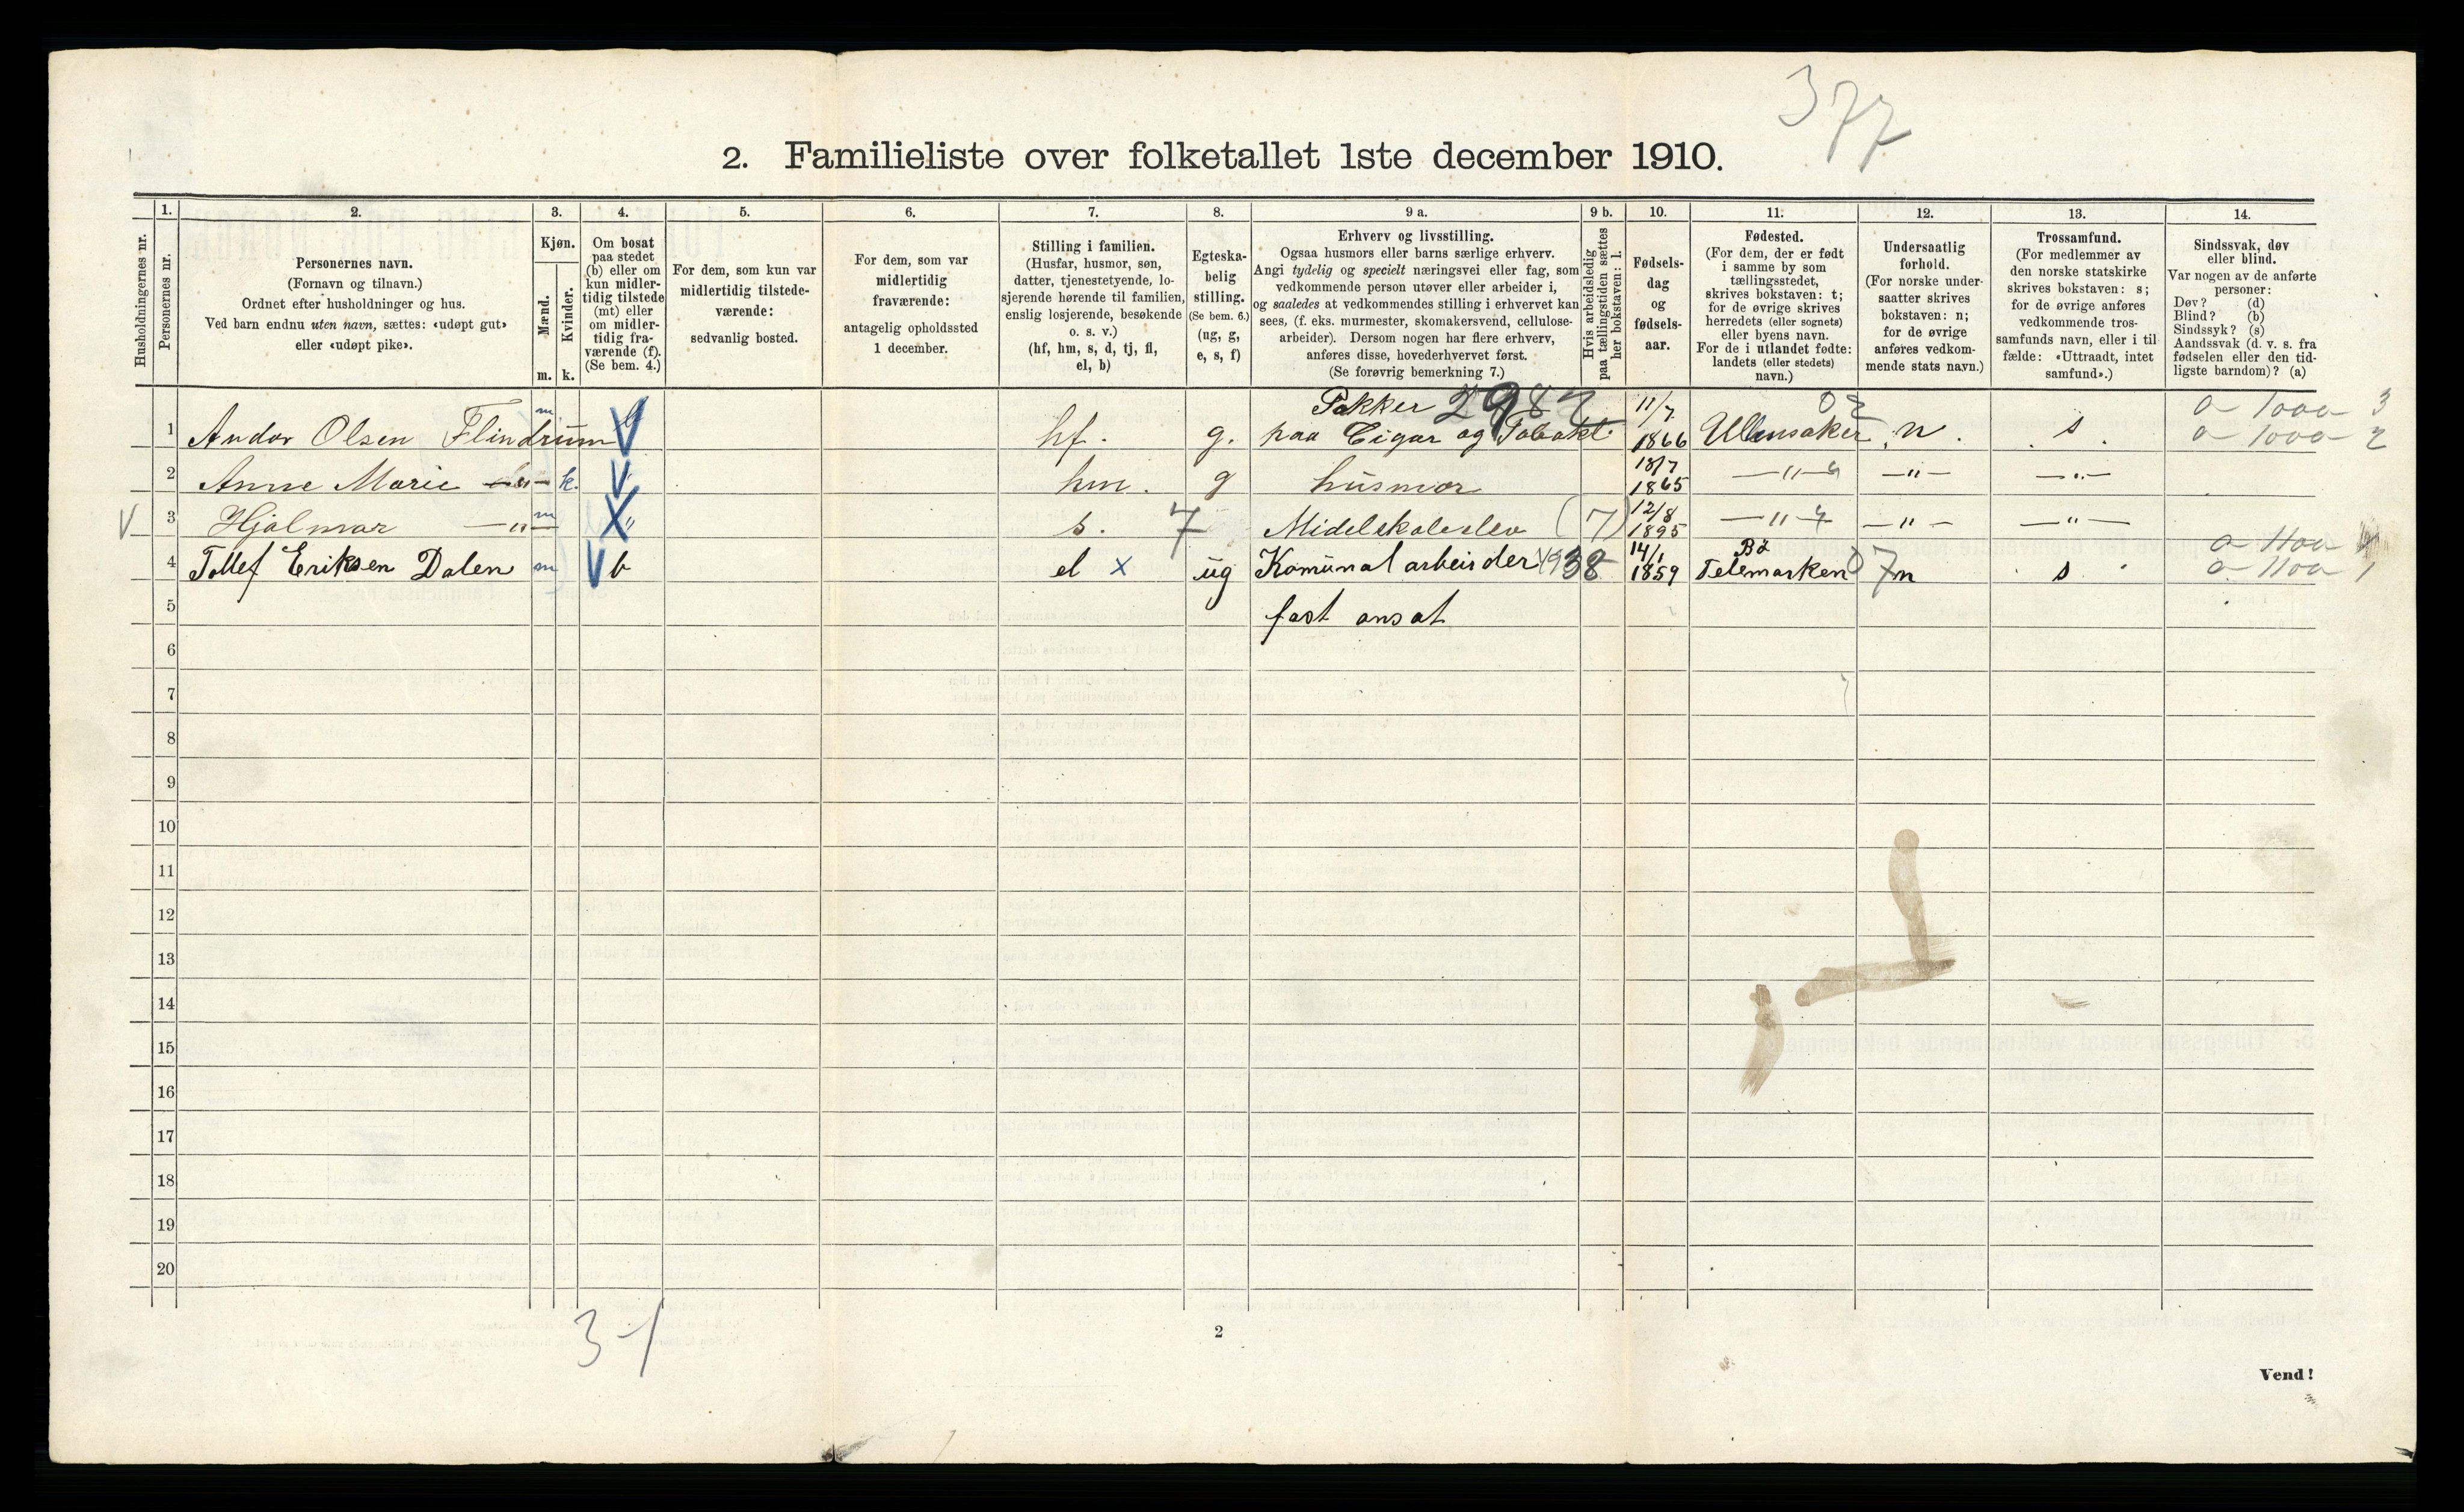 377
2. Familieliste over folketallet 1ste december 1910.
Husholdningernes nr.
1. Personernes nr.
2. Personernes navn.
(Fornavn og tilnavn.)
Ordnet efter husholdninger og hus.
Ved barn endnu uten navn, sættes: «udøpt gut»
eller «udøpt pike».
3. Kjøn.
Mænd. m.
Kvinder. k.
4. Om bosat
paa stedet
(b) eller om
kun midler-
tidig tilstede
(mt) eller
om midler-
tidig fra-
værende (f).
(Se bem. 4.)
5. For dem, som kun var
midlertidig tilstede-
værende:
sedvanlig bosted.
6. For dem, som var
midlertidig
fraværende:
antagelig opholdssted
1 december.
7. Stilling i familien.
(Husfar, husmor, søn,
datter, tjenestetyende, lo-
sjerende hørende til familien,
enslig losjerende, besøkende
o. s. v.)
(hf, hm, s, d, tj, fl,
el, b)
8. Egteska-
belig
stilling.
(Se bem. 6.)
(ug, g,
e, s, f)
9 a. Erhverv og livsstilling.
Ogsaa husmors eller barns særlige erhverv.
Angi tydelig og specielt næringsvei eller fag, som
vedkommende person utøver eller arbeider i,
og saaledes at vedkommendes stilling i erhvervet kan
sees, (f. eks. murmester, skomakersvend, cellulose-
arbeider). Dersom nogen har flere erhverv,
anføres disse, hovederhvervet først.
(Se forøvrig bemerkning 7.)
9 b. Hvis arbeidsledig
paa tællingstiden sættes
her bokstaven: l.
10. Fødsels-
dag
og
fødsels-
aar.
11. Fødested.
(For dem, der er født
i samme by som
tællingsstedet,
skrives bokstaven: t;
for de øvrige skrives
herredets (eller sognets)
eller byens navn.
For de i utlandet fødte:
landets (eller stedets)
navn.)
12. Undersaatlig
forhold.
(For norske under-
saatter skrives
bokstaven: n;
for de øvrige
anføres vedkom-
mende stats navn.)
13. Trossamfund.
(For medlemmer av
den norske statskirke
skrives bokstaven: s;
for de øvrige anføres
vedkommende tros-
samfunds navn, eller i til-
fælde: «Uttraadt, intet
samfund».)
14. Sindssvak, døv
eller blind.
Var nogen av de anførte
personer:
Døv? (d)
Blind? (b)
Sindssyk? (s)
Aandssvak (d. v. s. fra
fødselen eller den tid-
ligste barndom)? (a)
1 Andor Olsen Flindrum m hf. g. Pakker 2982 paa Cigar og Tobakk 11/7 1866 Ullensaker n. s.
2 Anne Marie —"— k. hm. g husmor 18/7 1865 —"— —"— —"—
3 Hjalmar —"— m " s. 7 Midelskoleelev (7) 12/8 1895 —"— —"— —"—
4 Tollef Eriksen Dalen m b el x ug Komunal arbeider 14/1 1859 Bø Telemarken n s
5 fast ansat
6
7
8
9
10
11
12
13
14
15
16
17
18
19
20
3-1
2
Vend!